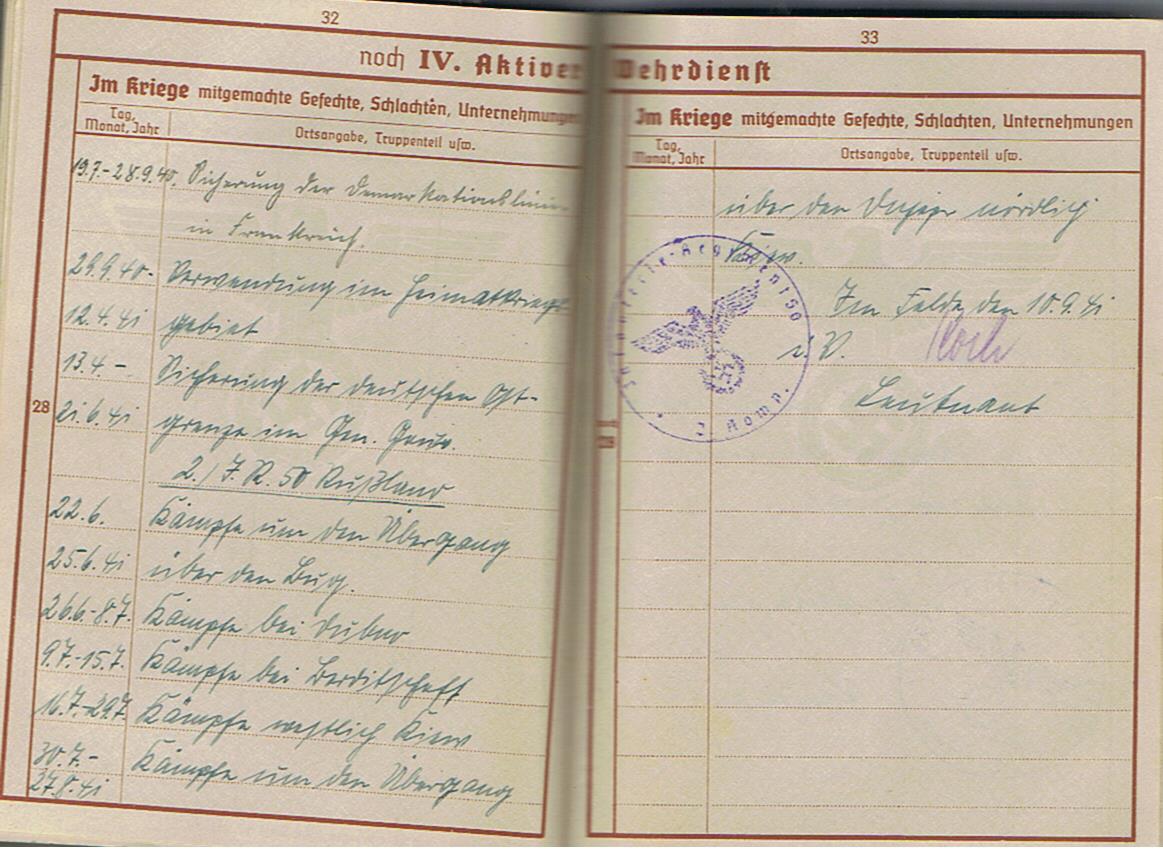 32
noch IV. Aktiver
Im Kriege mitgemachte Gefechte, Schlachten, Unternehmungen
Tag,
Monat, Jahr
Ortsangabe, Truppenteil usw.
19.7.-28.9.40. Sicherung der Demarkationslinie
in Frankreich.
29.9.40- Verwendung im Heimatkriegs
12.4.41 gebiet
13.4 - Sicherung der deutschen Ost-
21.6.41 grenze im Gen. Gouv.
2./ I.R. 50 Rußland
22.6. Kämpfe um den Übergang
25.6.41 über den Bug.
26.6.-8.7. Kämpfe bei Dubno
9.7.-15.7. Kämpfe bei Berditscheff
16.7.-29.7. Kämpfe westlich Kiew
30.7.- Kämpfe um den Übergang
27.8.41
28
33
Wehrdienst
Im Kriege mitgemachte Gefechte, Schlachten, Unternehmungen
Tag,
Monat, Jahr
Ortsangabe, Truppenteil usw.
über den Dnjepr nördlich
Kiew.
Im Felde, den 10.9.41
i.V. Koch
Leutnant
Infanterie-Regiment 50
2. Komp.
28